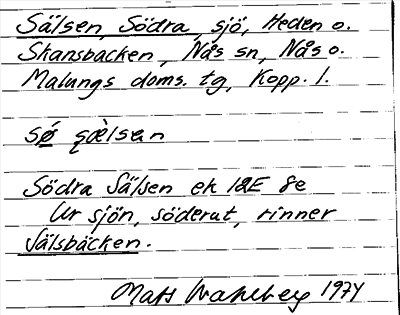 Sälsen, Södra, sjö, Heden o.
Skansbacken, Nås sn, Nås o.
Malungs doms. tg, Kopp. l.
Södra Sälsen ek 12E 8e
Ur sjön, söderut, rinner
Sälsbäcken.
Mats Wahlberg 1974